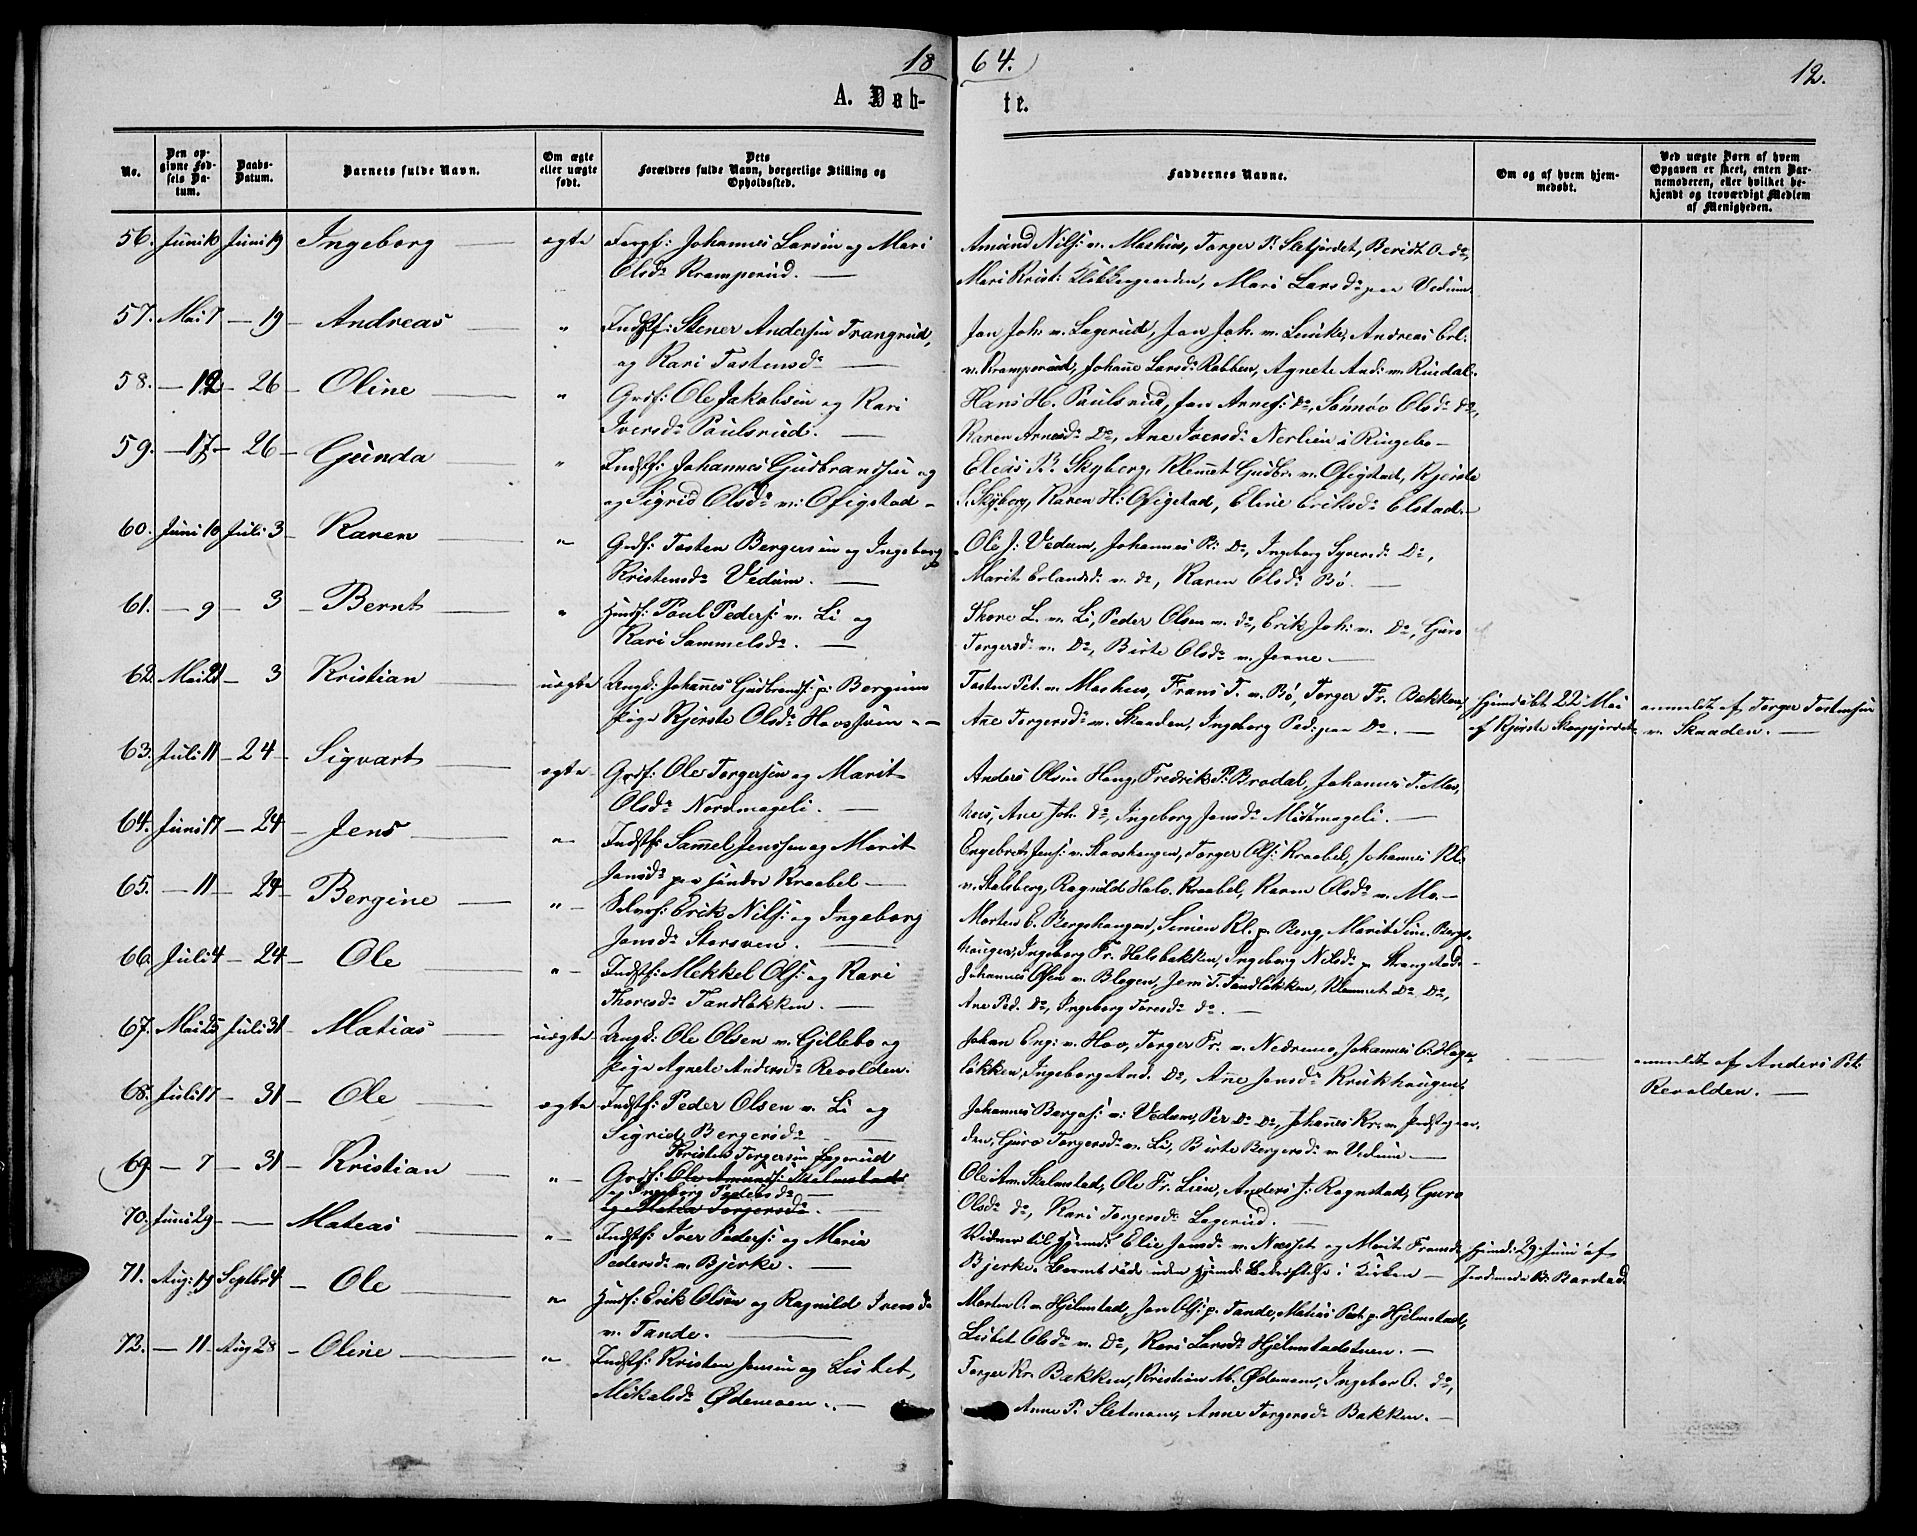 18 64. 12.
A. Døb- te.
No.
Den opgivne Fødsels Datum.
Daabs-Datum.
Barnets fulde Navn.
Om ægte eller uægte født.
Dets Forældres fulde Navn, borgerlige Stilling og Opholdssted.
Faddernes Navne.
Om og af hvem hjemmedøbt.
Ved uægte Børn af hvem Opgaven er skeet, enten Barnemoderen, eller hvilket bekjendt og troværdigt Medlem af Menigheden.
56. Juni 10 Juni 19 Ingeborg ægte Johannes Larsen og Mari
Olsdr Kramperud.
Amund Nilss: v. Moshus, Torger P. Sletjordet, Berit O. do,
Mari Krist: Klokkergaarden, Mari Larsdr paa Vedum.
57. Mai 7 — 19 — Andreas " Indstf: Stener Andersen Trangrud,
og Kari Tostensdr
Jon Joh. v. Lagerud, Jon Joh. v. Andreas Erl:
v. Kramperud, Johane Larsdr Robben, Agnete And: v. Rindal.
58. — 12 — 26 — Oline " Grdf: Ole Jakobsen og Kari
Iversdr Paulsrud.
Hans H. Paulsrud, Jon Arnes: do, Olsdr do,
Karen Arnesdr Do, Ane Iversdr Nerlien i Ringebo —
59. — 17 — 26 — Gunda " Indstf: Johannes Gudbrandsen og
og Sigrid Olsdr v. Ofigstad —
Eleas P. Skyberg, Klemmet Gudbr. v. Ofigstad, Kjerste
S. Skyberg, Karen H: Ofigstad, Eline Eriksdr Elstad —
60. Juni 10 Juli 3 — Karen " Grdf: Tosten Bergersen og Ingeborg
Kristensdr Vedum.
Ole J: Vedum, Johannes P: Do, Ingeborg Syversdr Do,
Marit Erlandsdr v. do, Karen Olsdr Bø.
61. — 9 — 3 — Bernt " Husf: Poul Peders: v. Li og
Kari Sammelsdr.
Thore L. v. Li, Peder Olsen v. do, Erik Joh: v. Do, Guro
Torgersdr v. Do, Birte Olsdr v.
62. Mai 21 — 3 Kristian uægte Ungk: Johannes Gudbrands: p. Bergum
Pige Kjerste Olsdr
Tosten Pet. v. Moshus, Frans T. v. Bø, Torger Fr. Bakken,
Ane Torgersdr v. Skaaden, Ingeborg Ped: paa Do.
Hjemdøbt 22 Mai
af Kjerste
anmeldt af Torger Tostensen
v. Skaaden.
63. Juli 11 — 24 — Sigvart ægte Grdf: Ole Torgersen og Marit
Olsdr Nordmageli.
Anders Olsen Haug, Fredrik P. Brodal, Johannes T. Mos,
hus, Ane Joh. do, Ingeborg Jonsdr Midtmageli.
64. Juni 17 — 24 — Jens " Indstf: Sammel Jenssen og Marit
Jonsdr paa søndre Kraabel
Engebret Jens: v. Torger Ols: Kraabel, Johannes Kl.
v. Stalsberg, Ragnild Halv. Kraabel, Karen Olsdr v. Mo. —
65. — 11 — 24 — Bergine " — Selvrf: Erik Nils: og Ingeborg
Jonsdr Storsveen.
Morten E. Bergshaugen, Simen Kl. p. Berg, Marit Sim. Bergs-
haugen, Ingeborg Fr. Helsbakken, Ingeborg Nilsdr p.
66. Juli 4 — 24 — Ole " Indstf: Mekkel Ols: og Kari
Thoresdr Tandløkken.
Johannes Olsen v. Blegen, Jens T. Tandløkken, Klemmet Do Do,
Ane Ped. Do, Ingeborg Toresdr do.
67. Mai 25 Juli 31 — Matias uægte Ungk: Ole Olsen v. Gillebo og
Pige Agnete Andersdr Revolden.
Johan Eng: v. Hov, Torger Fr. v. Nedremo, Johannes O. Hage-
løkken, Ingeborg And. Do, Anne Jonsdr Krukhaugen.
anmeldt af Anders Pet:
Revolden.
68. Juli 17 — 31 — Ole ægte Indstf: Peder Olsen v. Li og
Sigrid Bergersdr
Johannes Bergers: v. Vedum, Per Do Do, Johannes Kr. v.
den, Guro Torgersdr v. Li, Birte Bergersdr v. Vedum —
Kristen Torgersen Lagerud
69. — 7 — 31 — Kristian " Grdf: Ole Amunds: Skalmstad
og Ingeborg Pedersdr
og Mari Torgersdr.
Ole Am. Skalmstad, Ole Fr. Lien, Anders J: Rognstad, Guro
Olsdr do, Kari Torgersdr Lagerud.
70. Juni 29 — — Mateas " Indstf: Iver Peders: og Maria
Pedersdr v. Bjerke.
Vidner til Hjemd: Elie Jonsdr v. Næsset og Marit Fransdr
Bjerke. Barnet døde uden Hjemd: Bekræftelse i Kirken —
Hjemd: 29 Juni af
Jordemoder B. Barstad
71. Aug: 19 Septbr 4 — Ole " Husf: Erik Olsøn og Ragnild Iversdr
v. Tande.
Morten O. v. Hjelmstad, Jon Ols: p. Tande, Matias Pet. p. Hjelmstad,
Lisbet Olsdr v. Do, Kari Larsdr Hjelmstadstuen. —
72. — 11 Aug 28 — Oline " Indstf: Kristen Jensen og Lisbet,
Mikalsdr Ødemoen. —
Torger Kr. Bakken, Kristian M. Ødemoen, Ingebor O. do,
Anne P. Sletmoen, Anne Torgersdr Bakken. —